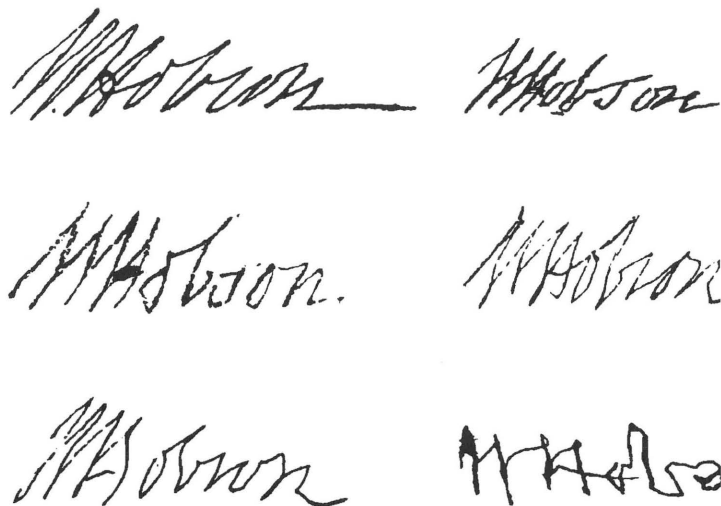 W Hobson W Hobson
W Hobson. W Hobson
W Hobson W Hobs